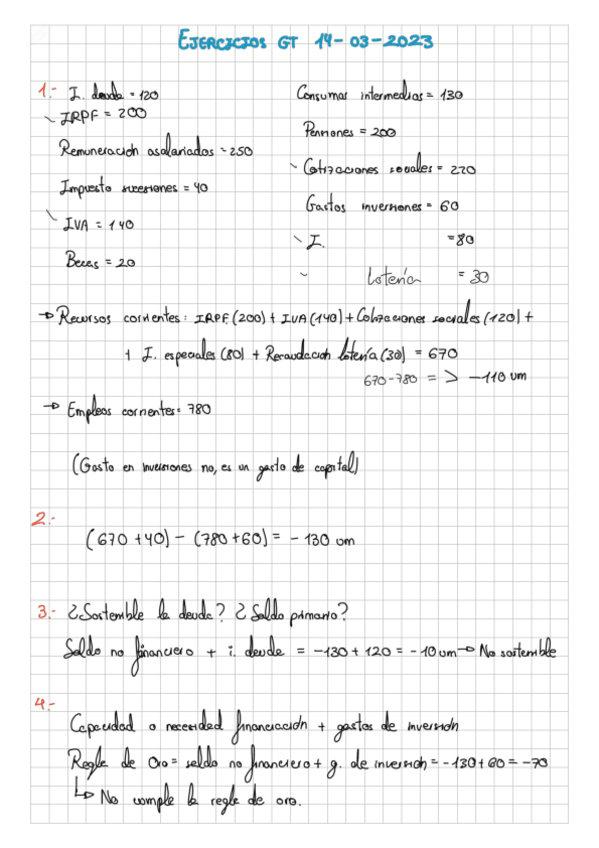 EJERCICIOS GT 14-03-2023
1.- I. deuda = 120
Consumos intermedios = 130
IRPF = 200
Pensiones = 200
Remuneración asalariados = 250
Cotizaciones sociales = 220
Impuesto sucesiones = 40
Gastos inversiones = 60
IVA = 140
I. = 80
Becas = 20
Lotería = 30
→ Recursos corrientes: IRPF (200) + IVA (140) + Cotizaciones sociales (120) +
+ I. especiales (80) + Recaudación lotería (30) = 670
670-780 = > -110 um
→ Empleos corrientes = 780
(Gasto en inversiones no, es un gasto de capital)
2.-
(670 + 40) - (780 + 60) = - 130 um
3.- ¿Sostenible la deuda? ¿Saldo primario?
Saldo no financiero + i. deuda = -130 + 120 = -10 um → No sostenible
4.-
Capacidad o necesidad financiación + gastos de inversión
Regla de Oro = saldo no financiero + g. de inversión = -130 + 60 = -70
↳ No cumple la regla de oro.